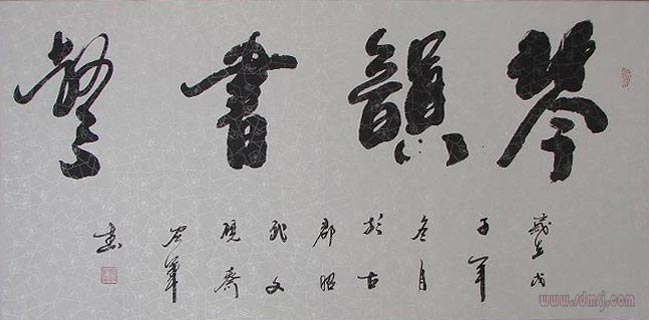 琴韻書聲
歲在戊
子年
冬月
於古
郡昭
武文
硯齋
書
www.sdmsj.com